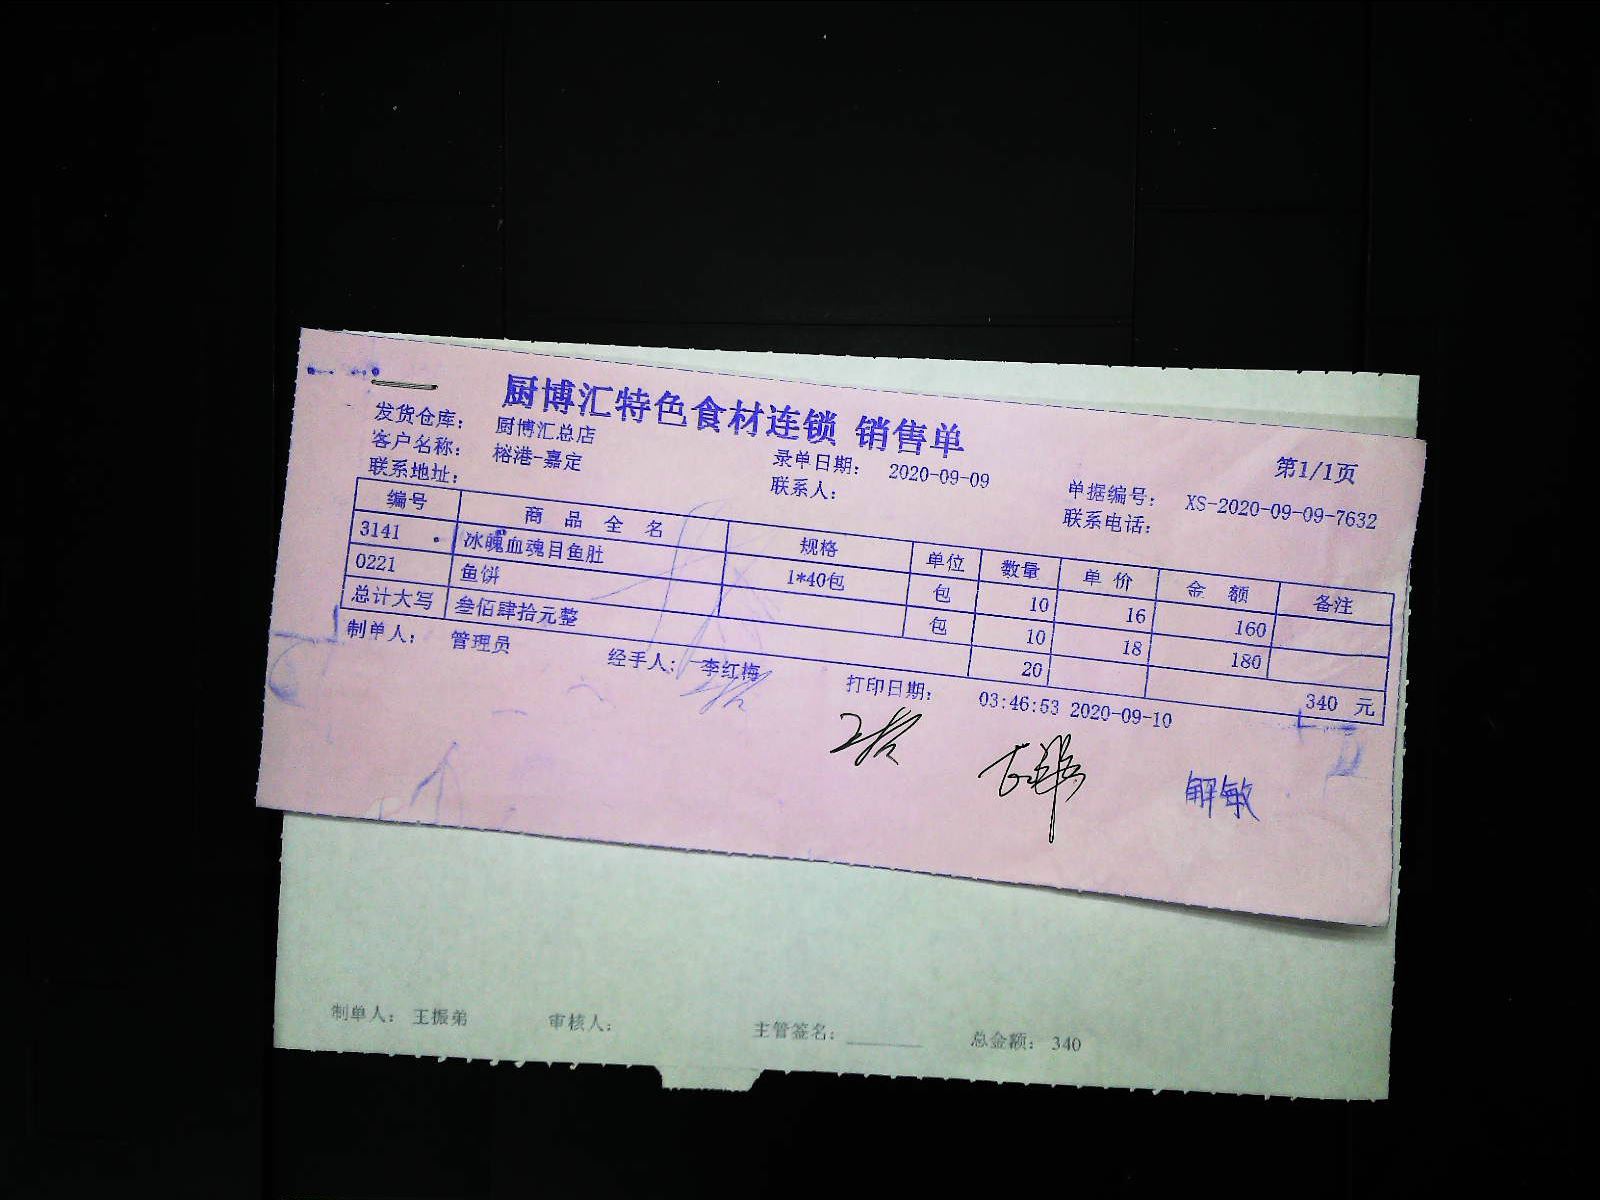 厨博汇特色食材连锁 销售单
第1/1页
发货仓库: 厨博汇总店
客户名称: 榕港-嘉定 录单日期: 2020-09-09 单据编号: XS-2020-09-09-7632
联系地址: 联系人: 联系电话:
编号 商品全名 规格 单位 数量 单价 金额 备注
3141 冰魄血魂目鱼肚 1*40包 包 10 16 160
0221 鱼饼 包 10 18 180
总计大写 叁佰肆拾元整 20 340 元
制单人: 管理员 经手人: 李红梅 打印日期: 03:46:53 2020-09-10
解敏
制单人: 王振弟 审核人: 主管签名: 总金额: 340